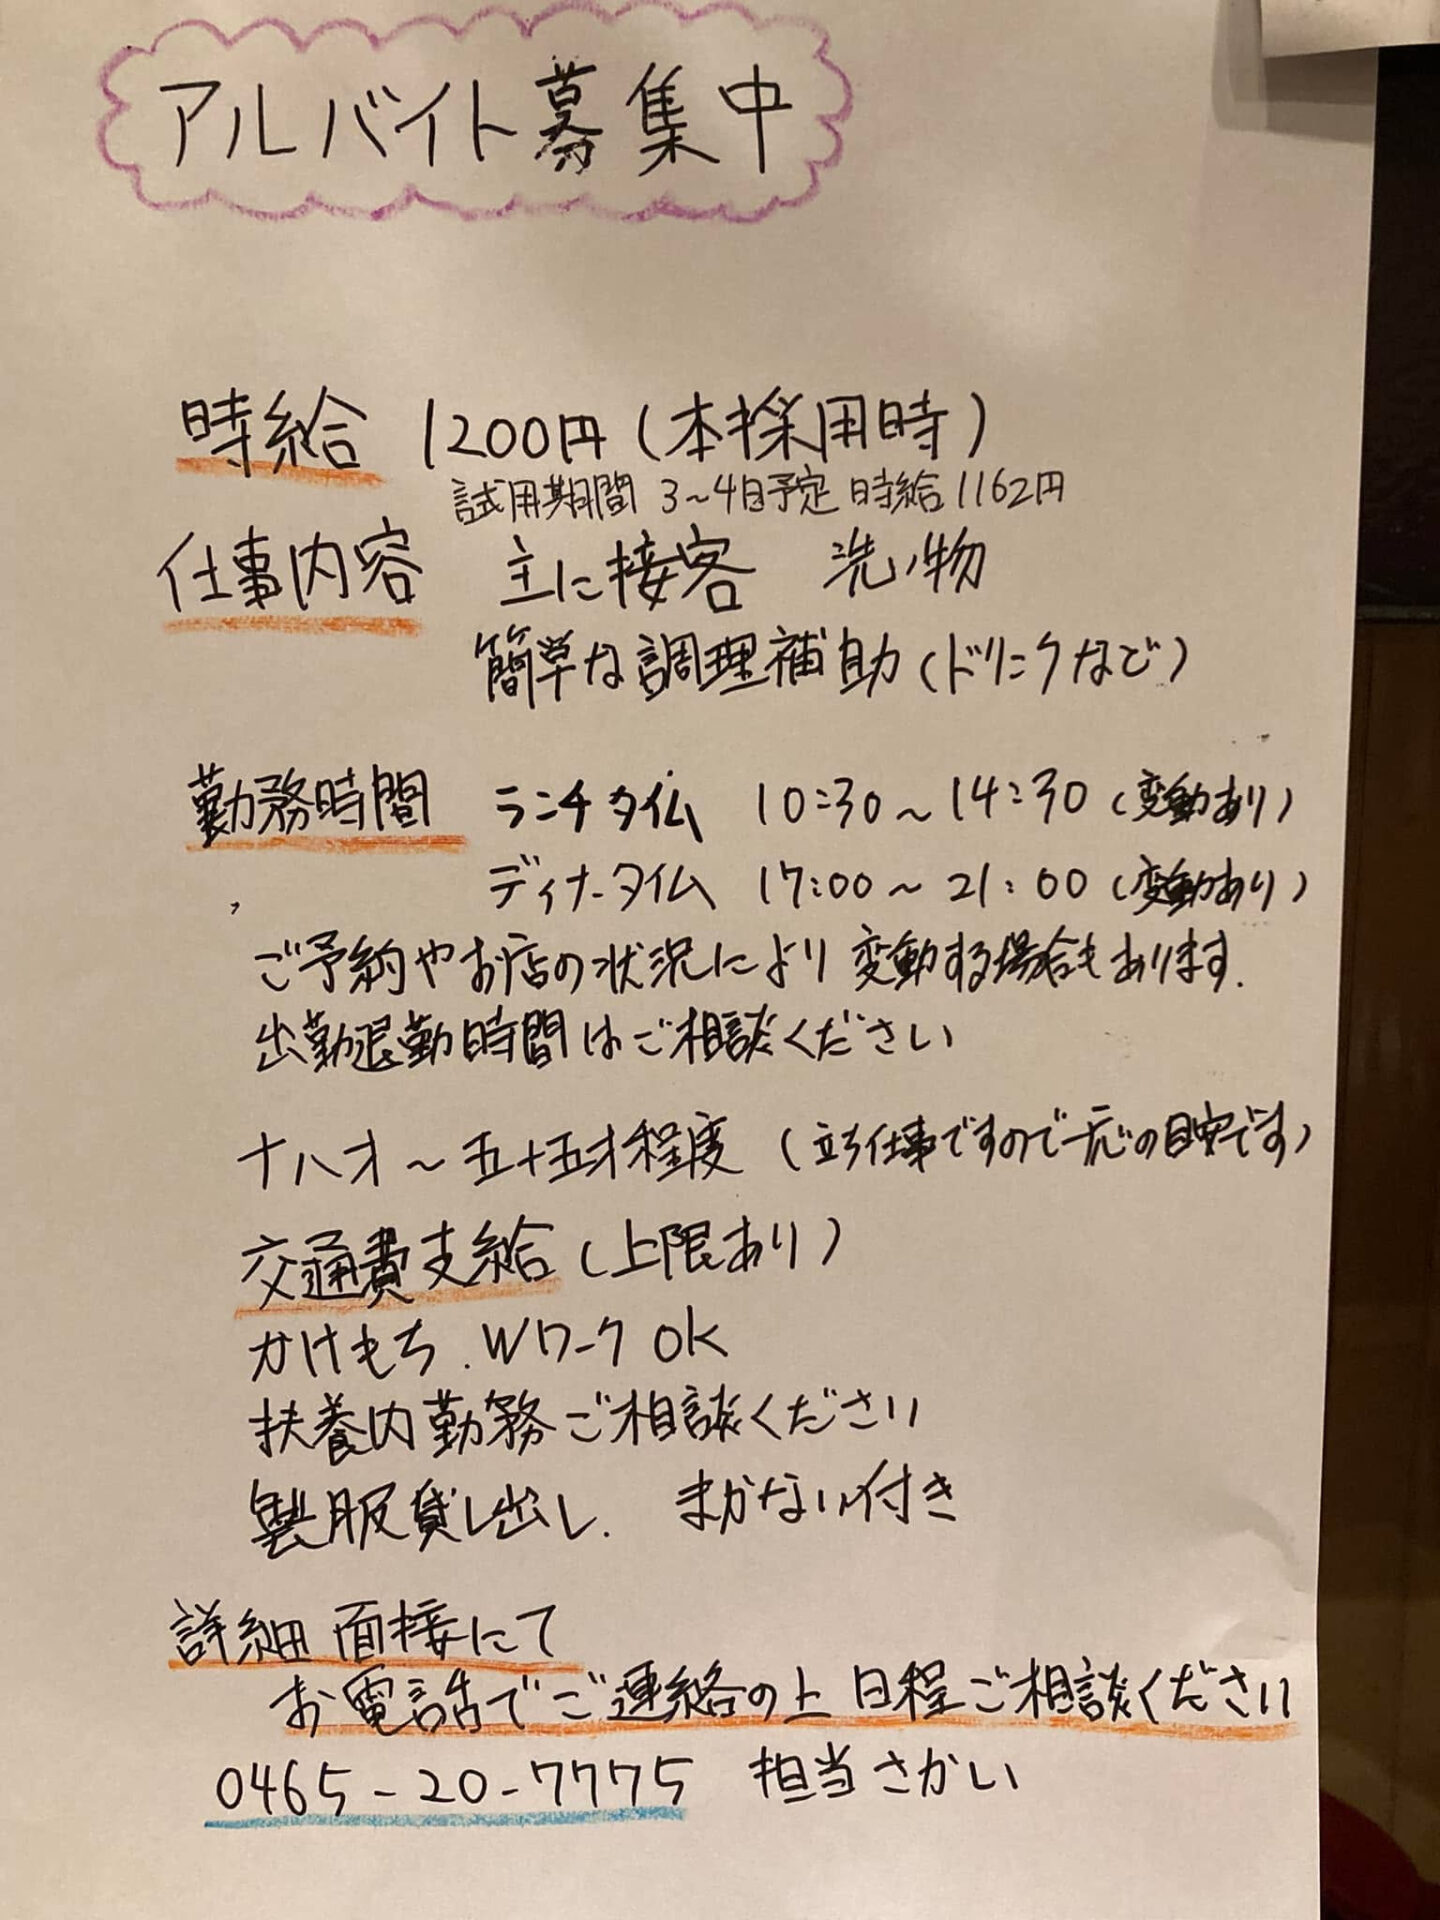 アルバイト募集中
時給 1200円(本採用時)
試用期間 3~4日予定 時給1162円
仕事内容 主に接客 洗い物
簡単な調理補助(ドリンクなど)
勤務時間 ランチタイム 10:30~14:30(変動あり)
ディナータイム 17:00~21:00(変動あり)
ご予約やお店の状況により変動する場合もあります.
出勤退勤時間はご相談ください
十八才~五十五才程度(立ち仕事ですので一応の目安です)
交通費支給(上限あり)
かけもち.Wワーク OK
扶養内勤務ご相談ください
製服貸し出し. まかない付き
詳細 面接にて
お電話でご連絡の上 日程ご相談ください
0465-20-7775 担当さかい